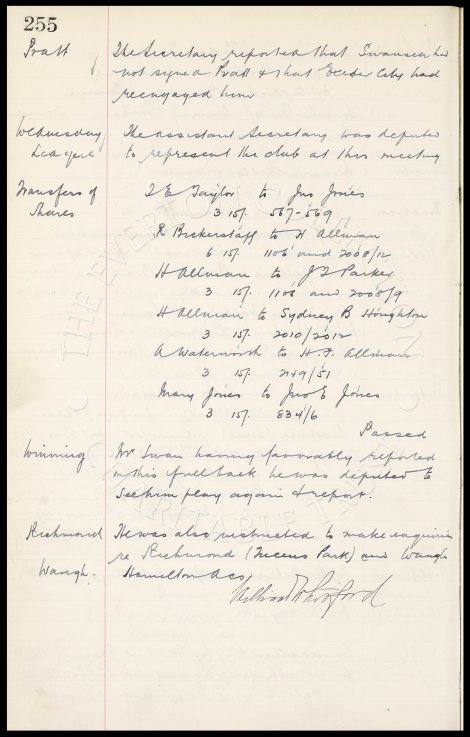 255
Pratt The Secretary reported that Swansea had
not signed Pratt & that Exeter City had
reengaged him
Wednesday The assistant Secretary was deputed
League to represent the club at this meeting
Transfers of T E Taylor to Jno Jones
Shares 3 15/. 567-569
R Bickerstaff to H Allman
6 15/. 1106 and 2008/12
H Allman to J J Parker
3 15/. 1106 and 2008/9
H Allman to Sydney B Houghton
3 15/. 2010/2012
A Waterworth to H. J. Allman
3 15/. 2149/51
Mary Jones to Jno E Jones
3 15/. 834/6
Passed
Winning Mr Swan having favorably reported
on this fullback he was deputed to
see him play again & report.
Richmond He was also instructed to make enquiries
re Richmond (Queens Park) and Waugh
Waugh. Hamilton Acs
THE EVERTON
CHARITABLE